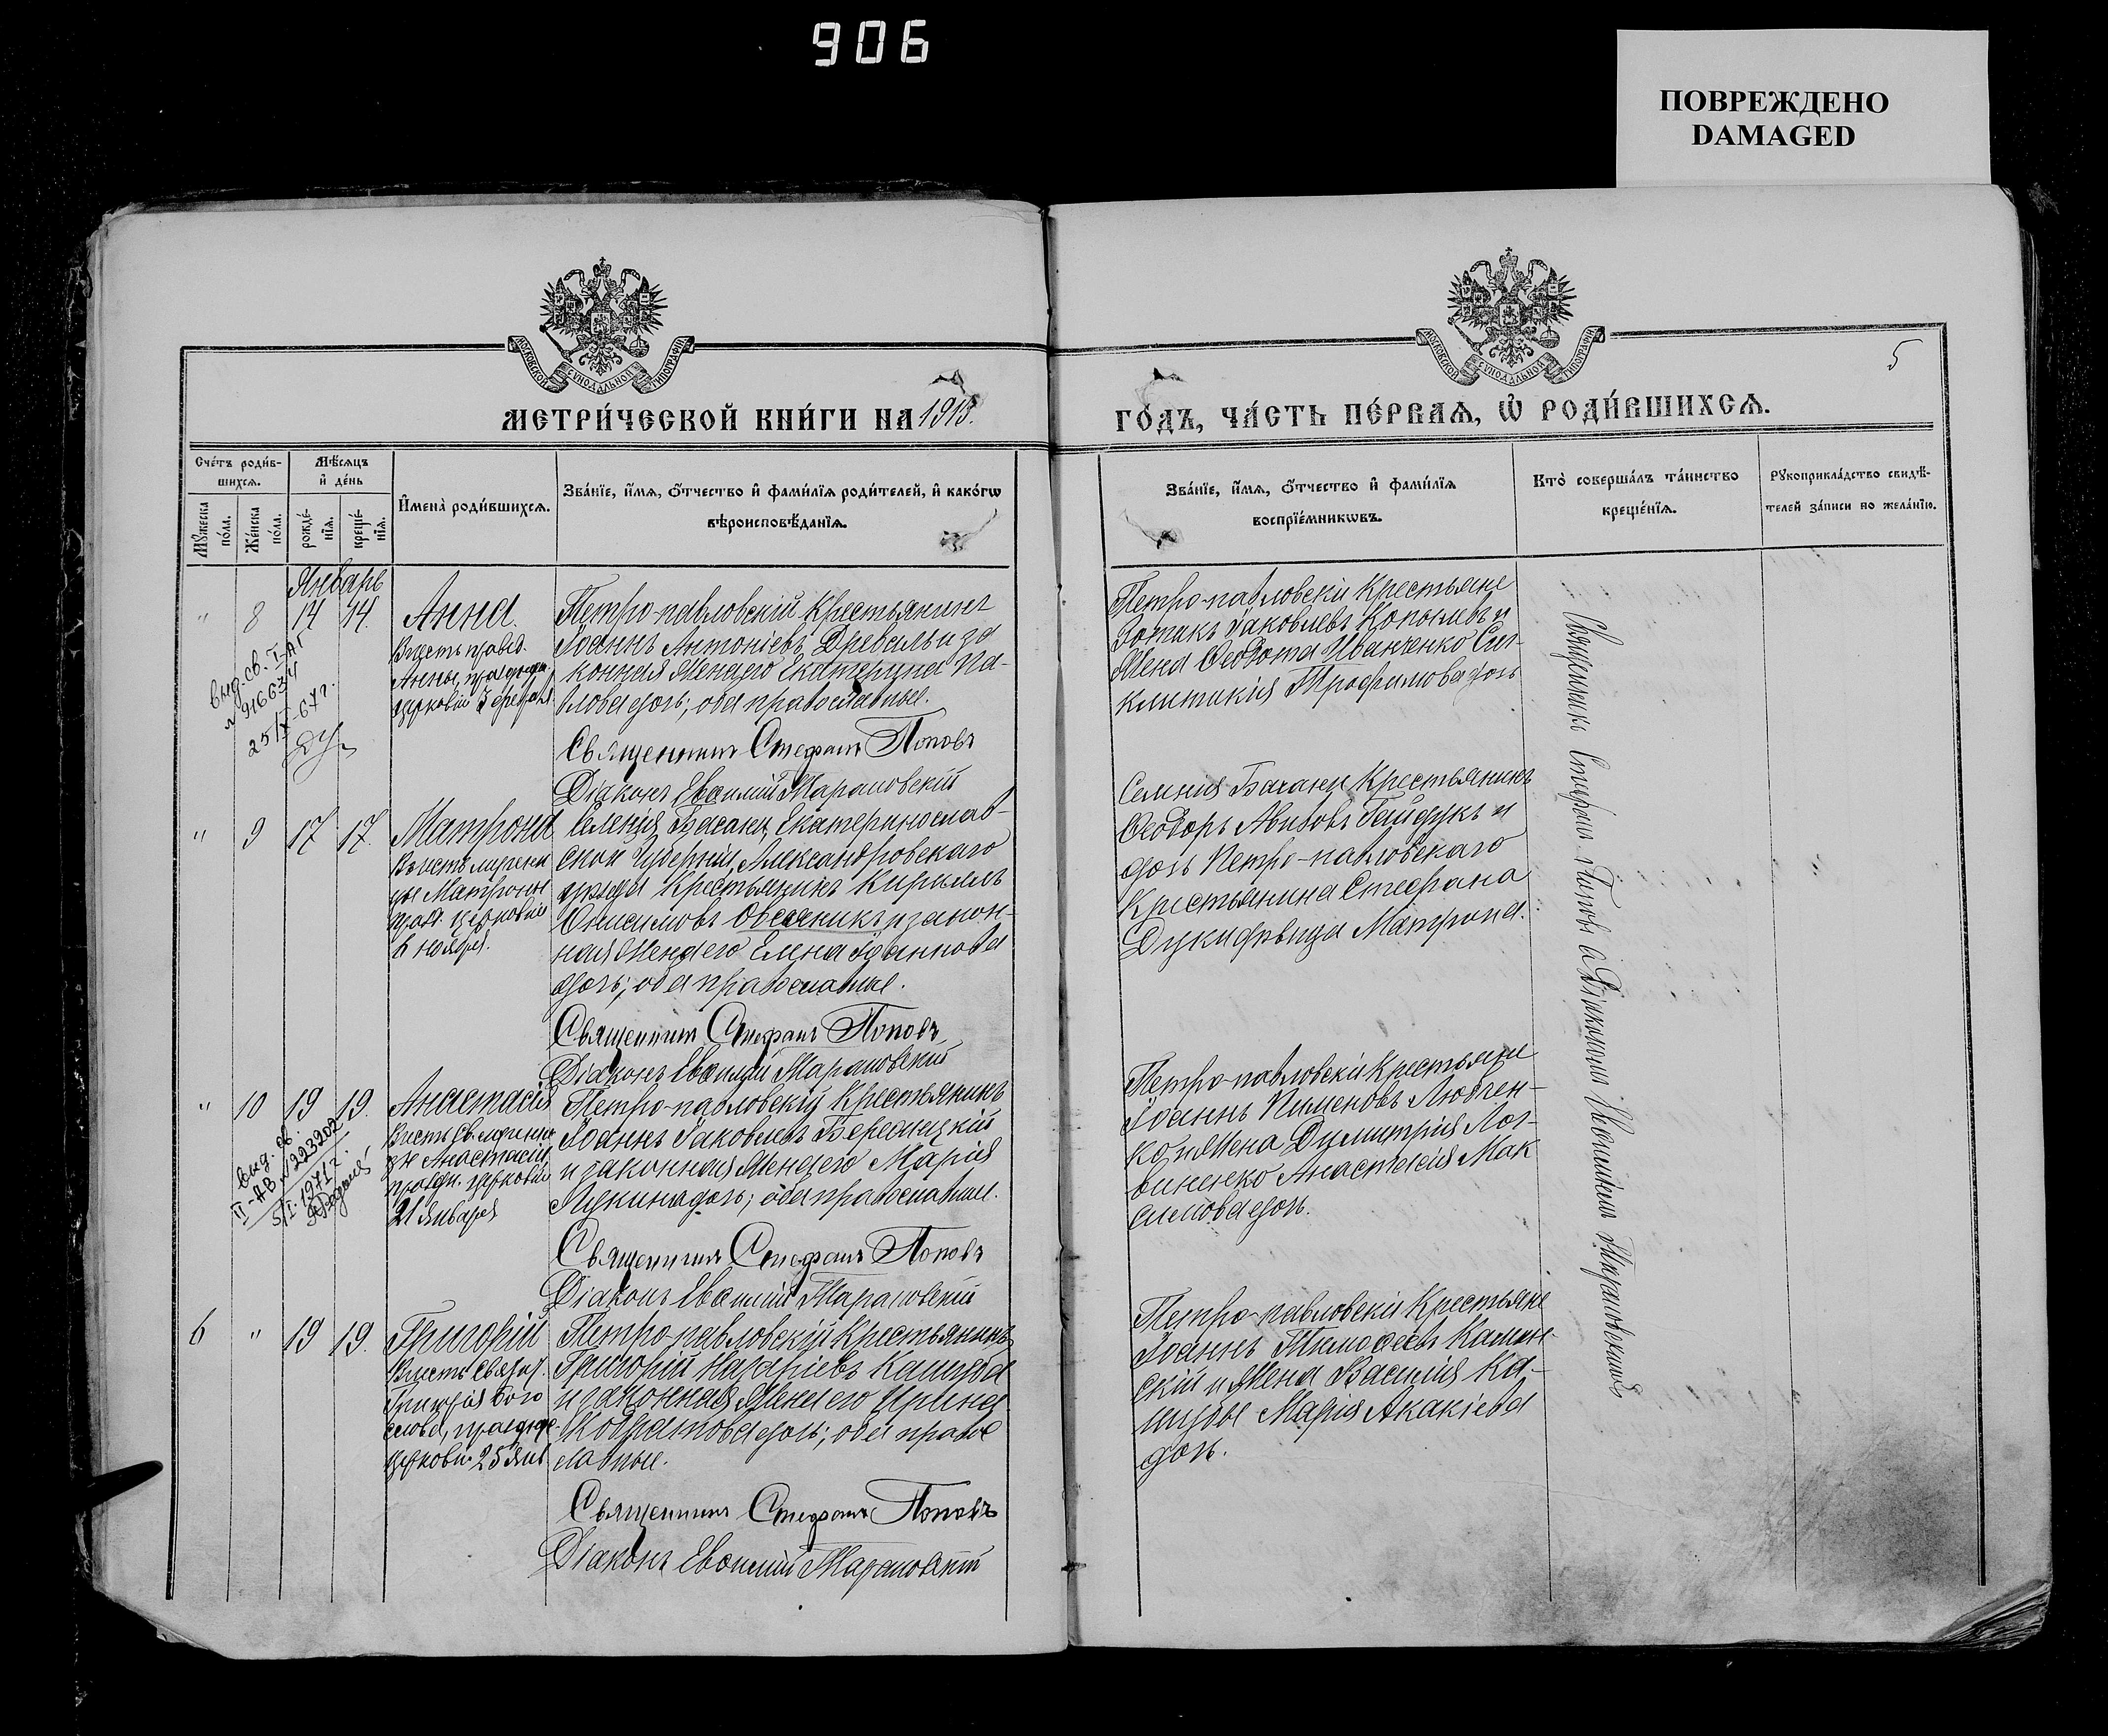 906
ПОВРЕЖДЕНО
DAMAGED
МОСКОВСКОЙ СѴНОДАЛЬНОЙ ТИПОГРАФІИ
МОСКОВСКОЙ СѴНОДАЛЬНОЙ ТИПОГРАФІИ
5
МЕТРИ́ЧЕСКОЙ КНИ́ГИ НА 1913.
ГО́ДЪ, ЧА́СТЬ ПЕ́РВАѦ, Ѡ҆ РОДИ́ВШИХСѦ.
Сче́тъ роди́в-
шихсѧ.
Мꙋжеска
по́ла.
Же́нска
по́ла.
Мѣ́сѧцъ
и҆ де́нь
рожде́-
нїѧ.
креще́-
нїѧ.
И҆мена̀ роди́вшихсѧ.
Зва́нїе, и҆́мѧ, ѻ҆́тчество и҆ фами́лїѧ роди́телей, и҆ како́гѡ
вѣроисповѣ́данїѧ.
Зва́нїе, и҆́мѧ, ѻ҆́тчество и҆ фами́лїѧ
воспрїе́мникѡвъ.
Кто̀ соверша́лъ та́инство
креще́нїѧ.
Рꙋкоприкла́дство свидѣ́-
телей за́писи по жела́нїю.
Январь
" 8 14 14. Анна.
Въ честь правед.
Анны, праздн.
церковію
выд. св. I-АГ
№ 916634
25/IX-67г.
Петро-павловскій крестьянинъ
Іоаннъ Антоніевъ Древаль и за
конная жена его Екатерина Па-
влова дочь; оба православные.
Священникъ Стефанъ Поповъ
Діаконъ Евѳимій Тарановскій
Петро-павловскіи крестьяне
Зотикъ Іаковлевъ Копыловъ и
жена Ѳеодота Иванченко Син-
клитикія Трофимова дочь
" 9 17 17. Матрона
Въ честь мучени
цы Матроны
празд. церковію
6 ноября.
Селенія Басани, Екатеринослав-
ской губерніи, Александровскаго
уѣзда крестьянинъ Кириллъ
Онисимовъ Овсяникъ и закон-
ная жена его Елена Іоаннова
дочь; оба православные.
Священникъ Стефанъ Поповъ
Діаконъ Евѳимій Тарановскій
Селенія Басани крестьянинъ
Ѳеодоръ Гайдукъ и
дочь Петро-павловскаго
крестьянина Стефана
Матрона.
" 10 19 19. Анастасія
Въ честь св. мучени
цы Анастасіи
праздн. церковію
21 Января
выд. св.
II-АВ № 223202
5/I-1971г.
Петро-павловскій крестьянинъ
Іоаннъ Іаковлевъ Бережицкій
и законная жена его Марія
Лукина дочь; оба православные.
Священникъ Стефанъ Поповъ
Діаконъ Евѳимій Тарановскій
Петро-павловскіи крестьяне
Іоаннъ Пименовъ Любчен-
ко и жена Димитрія Лог-
виненко Анастасія Мак
симова дочь.
6 " 19 19. Григорій
Въ честь
Григорія Бого
слова, праздн.
церков. 25 Янв
Петро-павловскій крестьянинъ
Григорій Назаріевъ Кашуба
и законная жена его Ирина
Кодратова дочь; оба право
славные.
Священникъ Стефанъ Поповъ
Діаконъ Евѳимій Тарановскій
Петро-павловскіи крестьяне
Іоаннъ Тимоѳеевъ Камин-
скій и жена Василія Ка-
шубы Марія Акакіева
дочь.
Священникъ Стефанъ Поповъ съ Діакономъ Евѳиміемъ Тарановскимъ